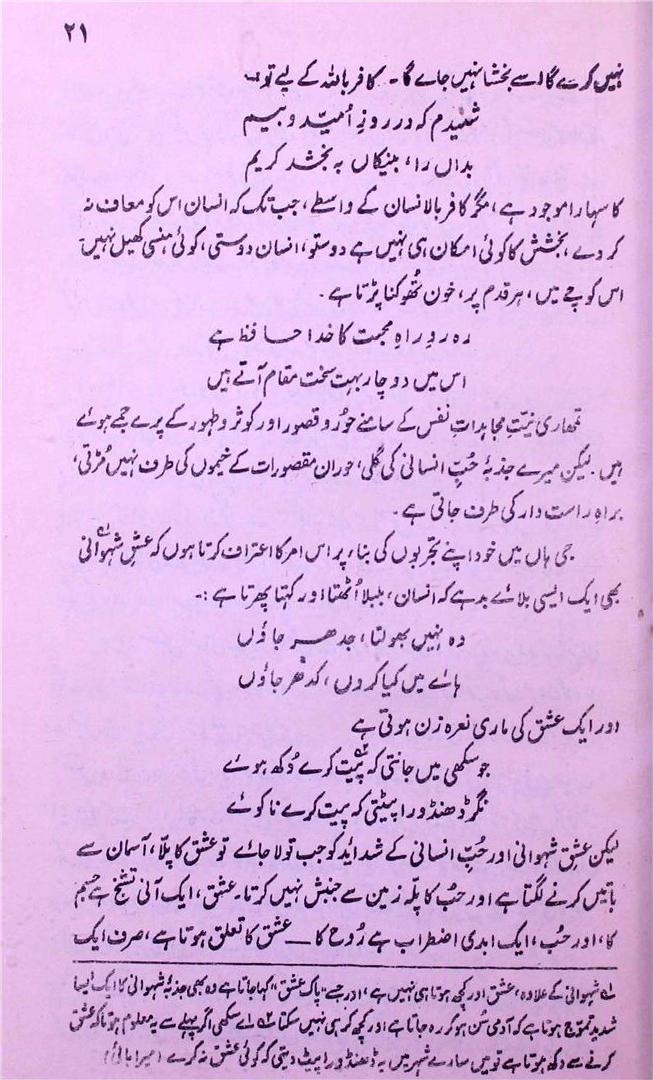 ۲۱
نہیں کرے گا اسے بخشا نہیں جاے گا ۔ کافر باللہ کے لیے تو ؂
شنیدم کہ در روزِ اُمید و بیم
بداں را، بنیکاں بہ بخشد کریم
کا سہارا موجود ہے، مگر کافر بالانسان کے واسطے، جب تک کہ انسان اس کو معاف نہ
کر دے، بخشش کا کوئی امکان ہی نہیں ہے دوستو، انسان دوستی، کوئی ہنسی کھیل نہیں۔
اس کوچے میں، ہر قدم پر، خون تھوکنا پڑتا ہے۔
رہ روِ راہِ محبت کا خدا حافظ ہے
اس میں دو چار بہت سخت مقام آتے ہیں
تمھاری نیتِ مجاہداتِ نفس کے سامنے حُور و قصور اور کوثر و طہور کے پرے جمے ہوئے
ہیں۔ لیکن میرے جذبۂ حُبِّ انسانی کی گلی، حورانِ مقصورات کے خیموں کی طرف نہیں مُڑتی،
براہِ راست دار کی طرف جاتی ہے۔
جی ہاں میں خود اپنے تجربوں کی بناء پر اس امر کا اعتراف کرتا ہوں کہ عشقِ شہوانی ؂۱
بھی ایک ایسی بلاے بد ہے کہ انسان، بلبلا اُٹھتا اور کہتا پھرتا ہے :۔
وہ نہیں بھولتا، جدھر جاؤں
ہاے میں کیا کروں، کدھر جاؤں
اور ایک عشق کی ماری نعرہ زن ہوتی ہے
جو سکھی میں جانتی کہ پیت ؂۲ کرے دُکھ ہوے
نگر ڈھنڈورا پیٹتی کہ پیت کرے نا کوے
لیکن عشقِ شہوانی اور حُبِّ انسانی کے شداید کو جب تولا جاے تو عشق کا پلّا، آسمان سے
باتیں کرنے لگتا ہے اور حُب کا پلّہ زمین سے جنبش نہیں کرتا۔ عشق، ایک آنی تشنج ہے جسم
کا، اور حُب، ایک ابدی اضطراب ہے رُوح کا — عشق کا تعلق ہوتا ہے، صرف ایک
؂۱ شہوانی کے علاوہ، عشق اور کچھ ہوتا ہی نہیں ہے، اور جسے "پاک عشق" کہا جاتا ہے وہ بھی جذبۂ شہوانی کا ایک ایسا
شدید تموّج ہوتا ہے کہ آدمی سُن ہو کر رہ جاتا ہے اور کچھ کر ہی نہیں سکتا ؂۲ اے سکھی اگر پہلے سے یہ معلوم ہوتا کہ عشق
کرنے سے دکھ ہوتا ہے تو میں سارے شہر میں یہ ڈھنڈورا پیٹ دیتی کہ کوئی عشق نہ کرے (میرا بائی)